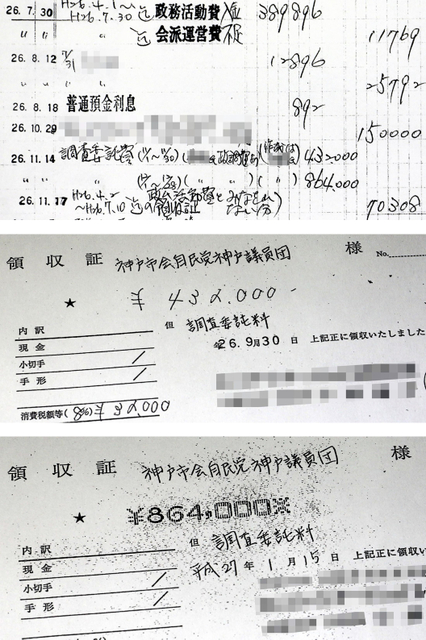 26.7.30 H26.4.1〜 H26.7.30 迄 政務活動費 389896
〃 〃 迄 会派運営費 11769
26.8.12 12896
〃 〃 25792
26.8.18 普通預金利息 892
26.10.29 150000
26.11.14 調査委託費 432000
〃 〃 864000
26.11.17 H26.4.2 〜H26.7.10 迄の領収証 70308
領収証 神戸市会自民党神戸議員団 様 No.
★ ¥432.000-
但 調査委託料
内訳
現金
小切手
手形
26.9月30日 上記正に領収いたしました
消費税額等(8%)¥32,000
領収証 神戸市会自民党神戸議員団 様
★ ¥864,000※
但 調査委託料
内訳
現金
小切手
手形
平成27年1月15日 上記正に領収い